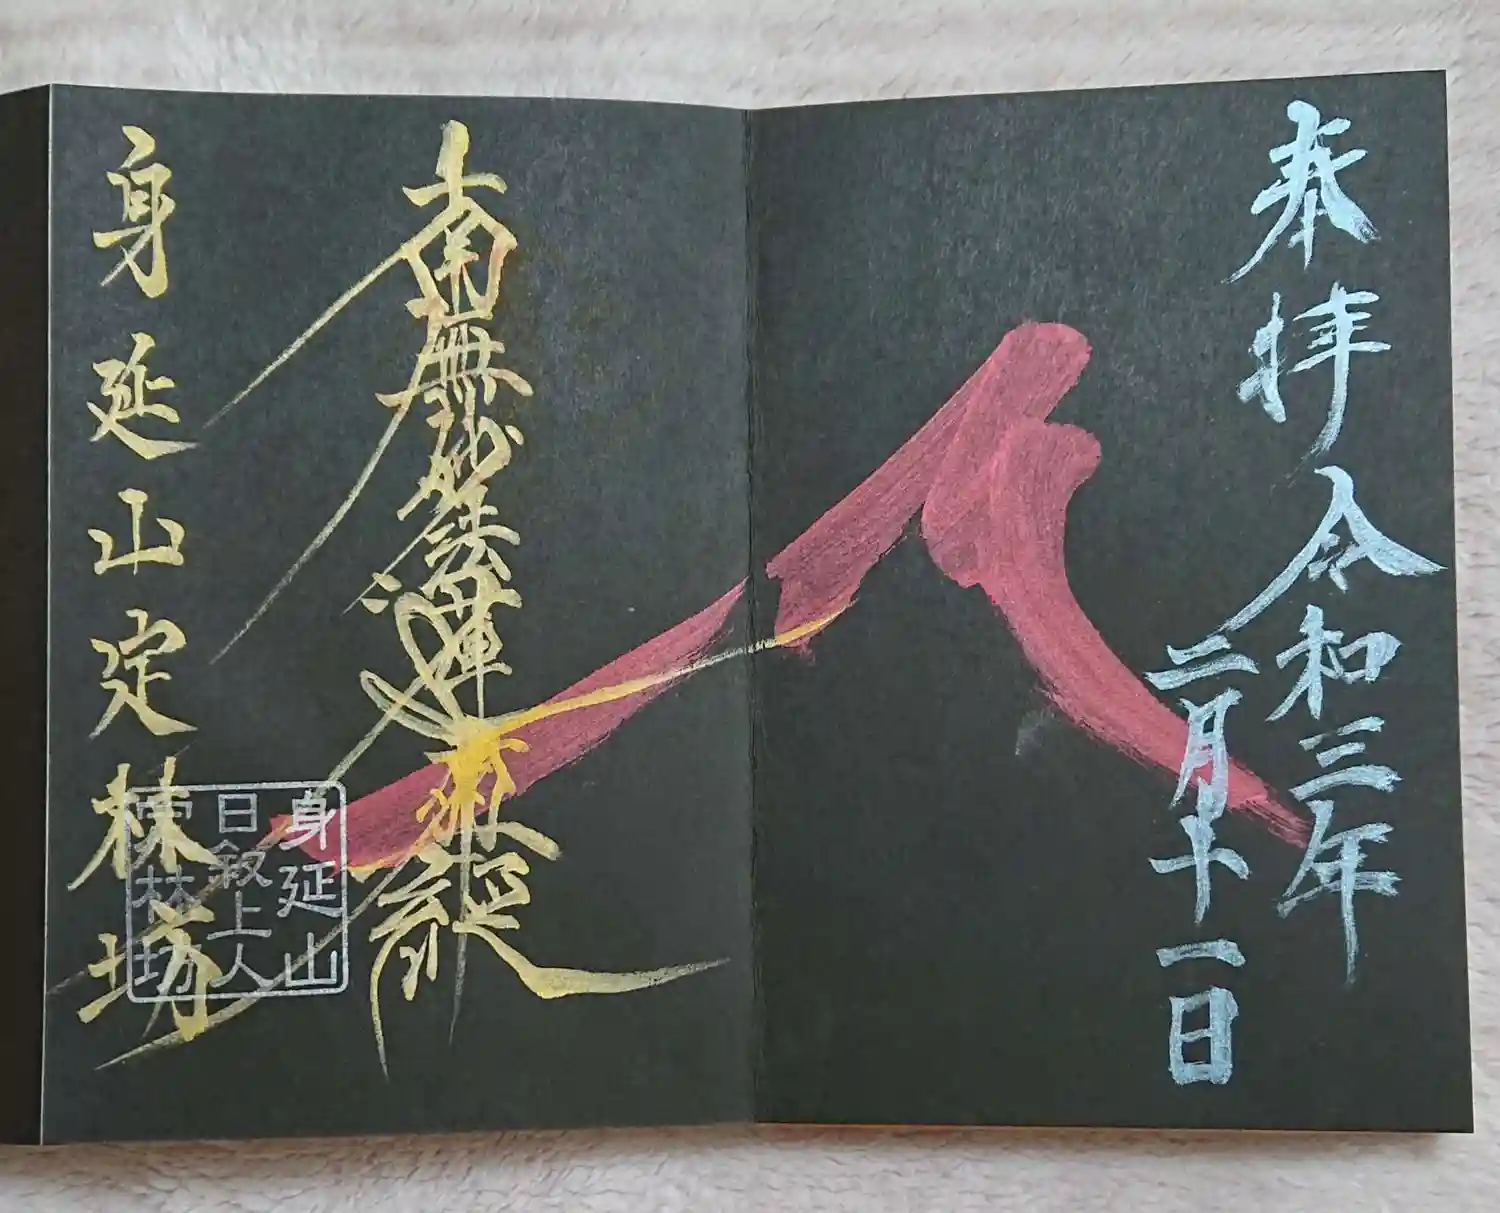 奉拝 令和三年
二月十一日
南無妙法蓮華経
身延山定林坊
身延山
日叙上人
定林坊